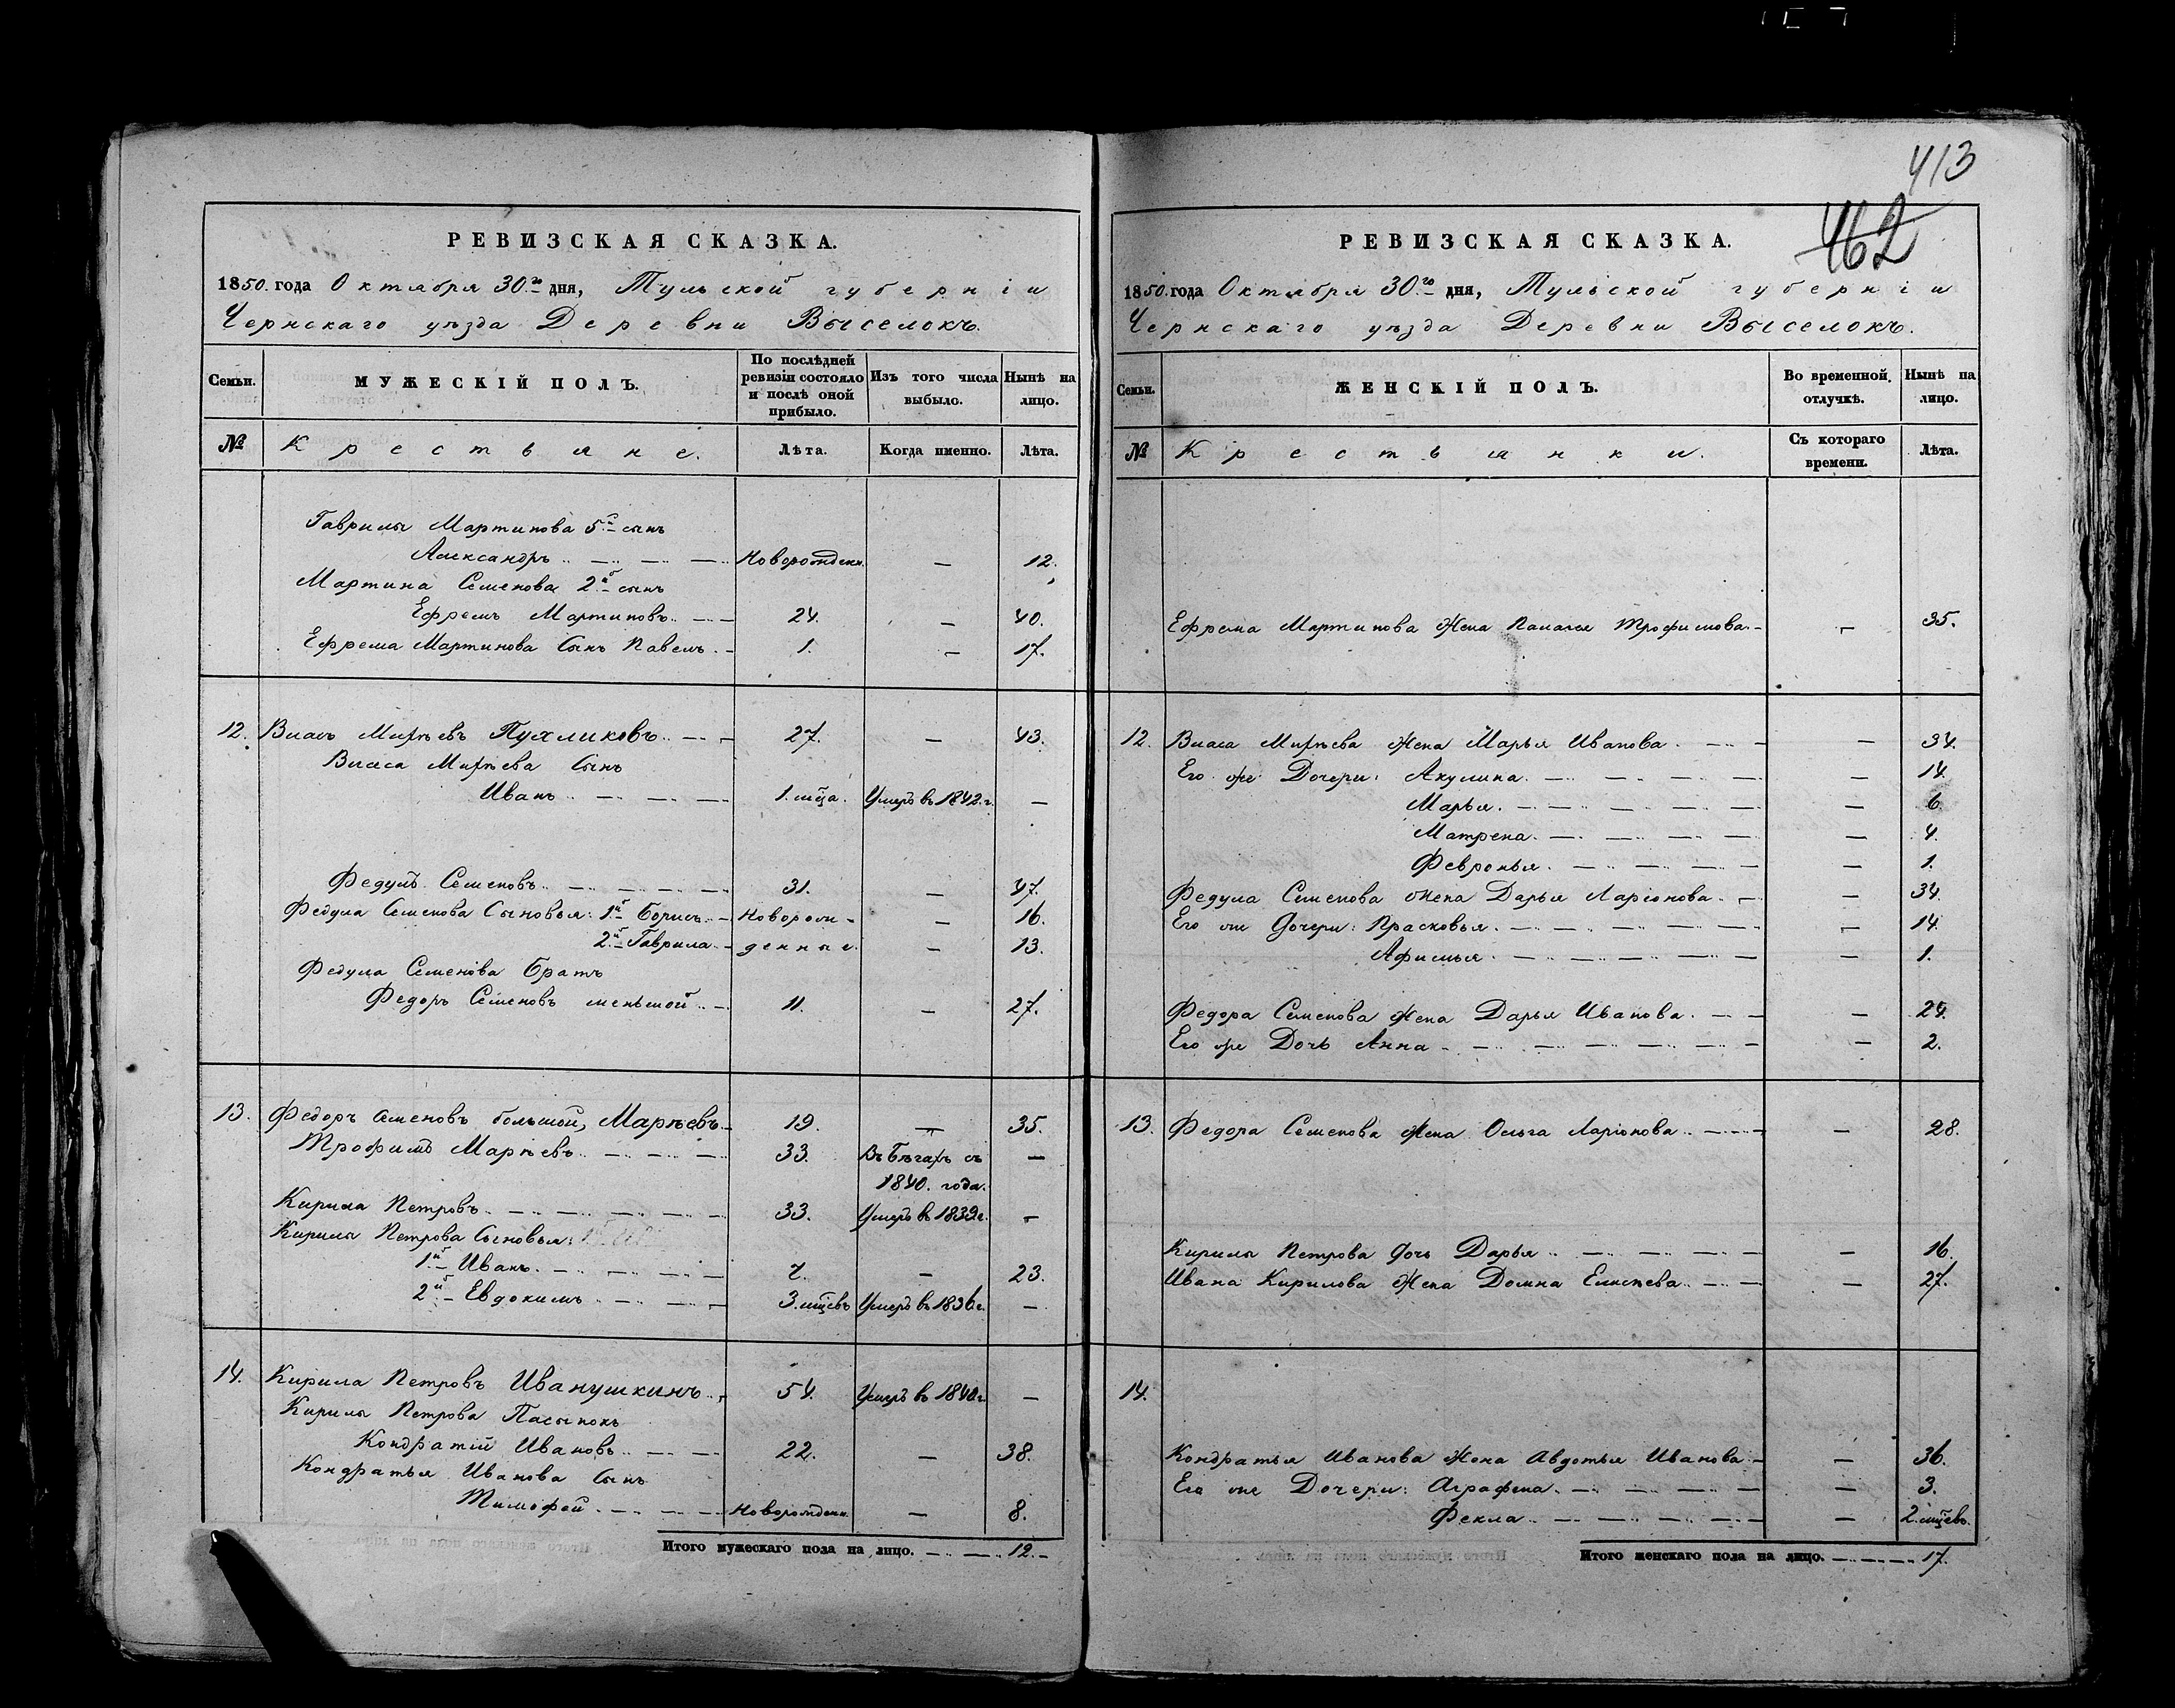 РЕВИЗСКАЯ СКАЗКА.
1850. года Октября 30.го дня, Тульской губерніи
Чернскаго уѣзда Деревни Выселокъ.
Семьи.
МУЖЕСКІЙ ПОЛЪ.
По послѣдней ревизіи состояло и послѣ оной прибыло.
Изъ того числа выбыло.
Нынѣ на лицо.
№
Крестьяне.
Лѣта.
Когда именно.
Лѣта.
Гаврилы Мартинова 5й сынъ
Александръ Новорожден. — 12.
Мартина Семенова 2й сынъ
Ефремъ Мартиновъ 24. — 40.
Ефрема Мартинова Сынъ Павелъ 1. — 17.
12. Власъ Миѣевъ Пухликовъ 27. — 43.
Власа Сынъ
Иванъ 1. мца. Умеръ въ 1842. г. —
Федулъ Семеновъ 31. — 47.
Федула Семенова Сыновья: 1й Борисъ Новорож- — 16.
2й Гаврила денные. — 13.
Федула Семенова Братъ
Федоръ Семеновъ меньшой 11. — 27.
13. Федоръ Семеновъ большой, Марѣевъ 19. — 35.
Трофимъ Марѣевъ 33. Въ бѣгахъ съ —
1840. года.
Кирила Петровъ 33. Умеръ въ 1839 г. —
Кирилы Петрова Сыновья:
1й Иванъ 7. — 23.
2й Евдокимъ 3. мцевъ Умеръ въ 1836 г. —
14. Кирила Петровъ Иванушкинъ 54. Умеръ въ 1840 г. —
Кирилы Петрова Пасынокъ
Кондратій Ивановъ 22. — 38.
Кондратья Иванова Сынъ
Тимофей Новорожден. — 8.
Итого мужескаго пола на лицо. 12.
413
462
РЕВИЗСКАЯ СКАЗКА.
1850. года Октября 30.го дня, Тульской губерніи
Чернскаго уѣзда Деревни Выселокъ.
Семьи.
ЖЕНСКІЙ ПОЛЪ.
Во временной отлучкѣ.
Нынѣ на лицо.
№
Крестьянки.
Съ котораго времени.
Лѣта.
Ефрема Мартинова Жена Палагея Трофимова — 35.
12. Власа Жена Марья Иванова. — 34.
Его же Дочери: Акулина. — 14.
Марья. — 6.
Матрена. — 4.
Февронья. — 1.
Федула Семенова Жена Дарья Ларіонова. — 34.
Его же Дочери: Прасковья. — 14.
Афимья. — 1.
Федора Семенова Жена Дарья Иванова. — 24.
Его же Дочь Анна — 2.
13. Федора Семенова Жена Ольга Ларіонова — 28.
Кирилы Петрова Дочь Дарья — 16.
Ивана Кирилова Жена Домна Елисѣева — 27.
14.
Кондратья Иванова Жена Авдотья Иванова — 36.
Его же Дочери: Аграфена. — 3.
Фекла — 2. мцевъ.
Итого женскаго пола на лицо. 17.